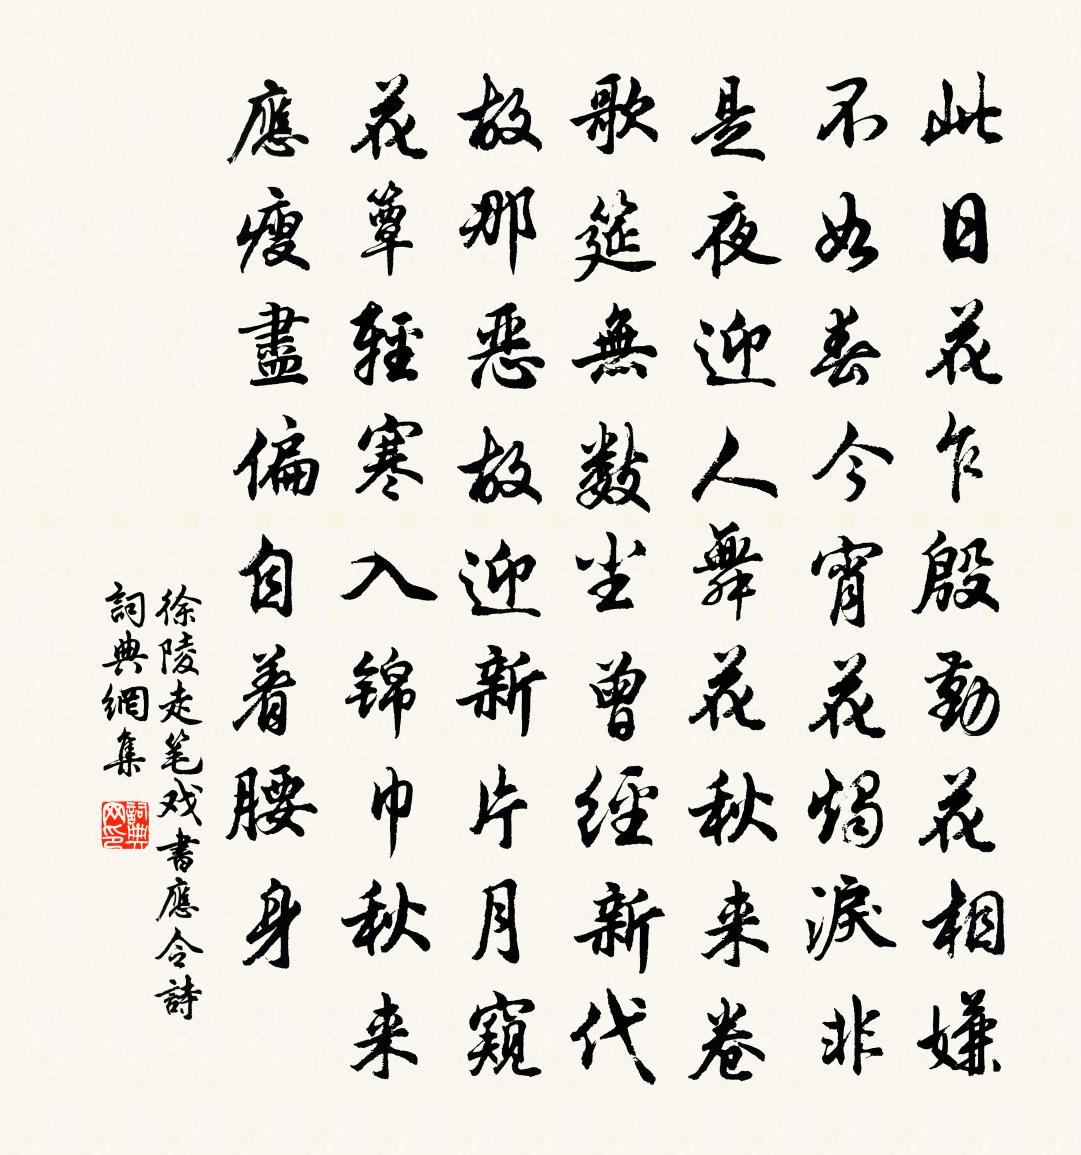 此日花乍殷勤花相嫌
不如春今宵花燭淚非
是夜迎人舞花秋来卷
歌筵無數坐曾經新代
故那惡故迎新片月窺
花簟輕寒入錦巾秋来
應瘦盡偏自着腰身
徐陵走笔戏書應令詩
詞典網集